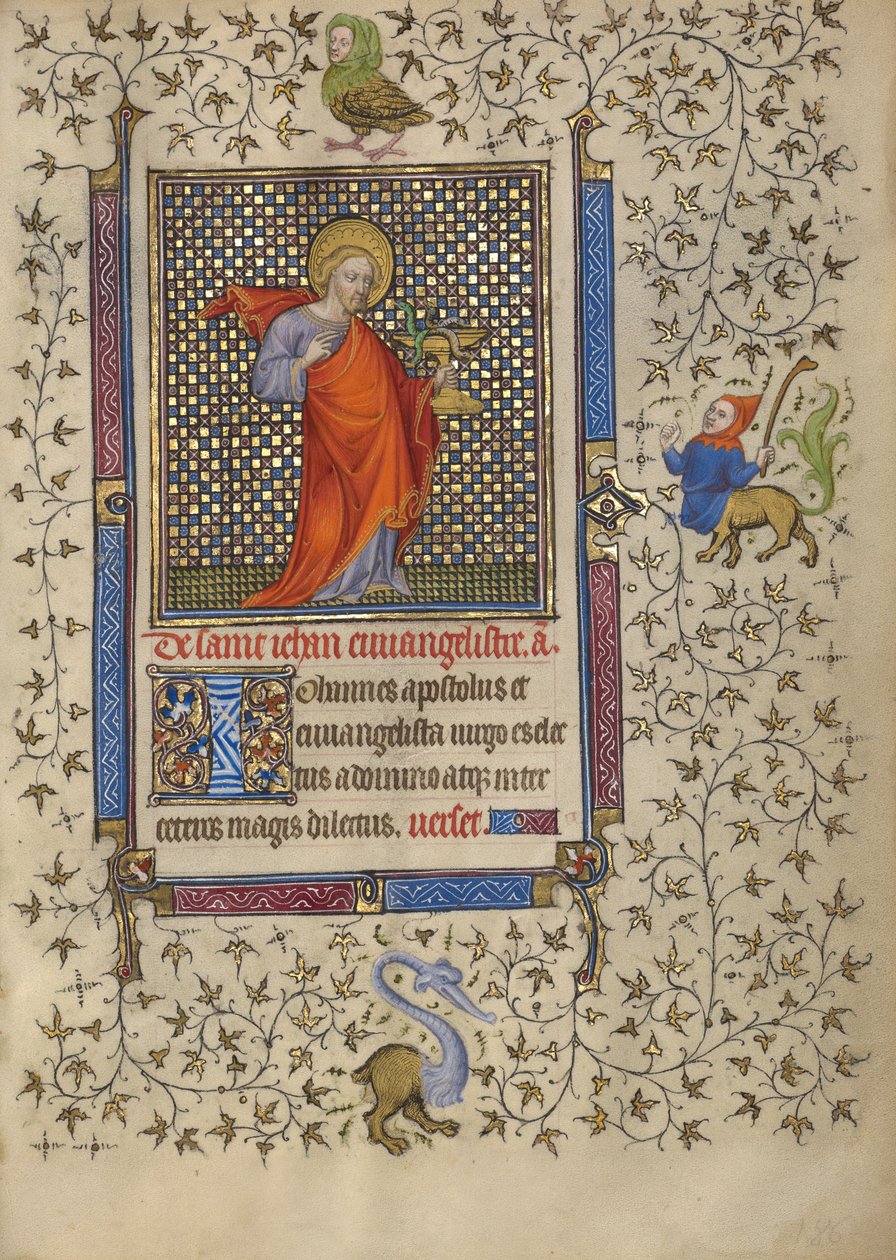 De saint iehan euuangeliste. a.
Iohannes apostolus et
euuangelista uirgo es elec
tus a domino atq inter
ceteros magis dilectus. uerset.
186